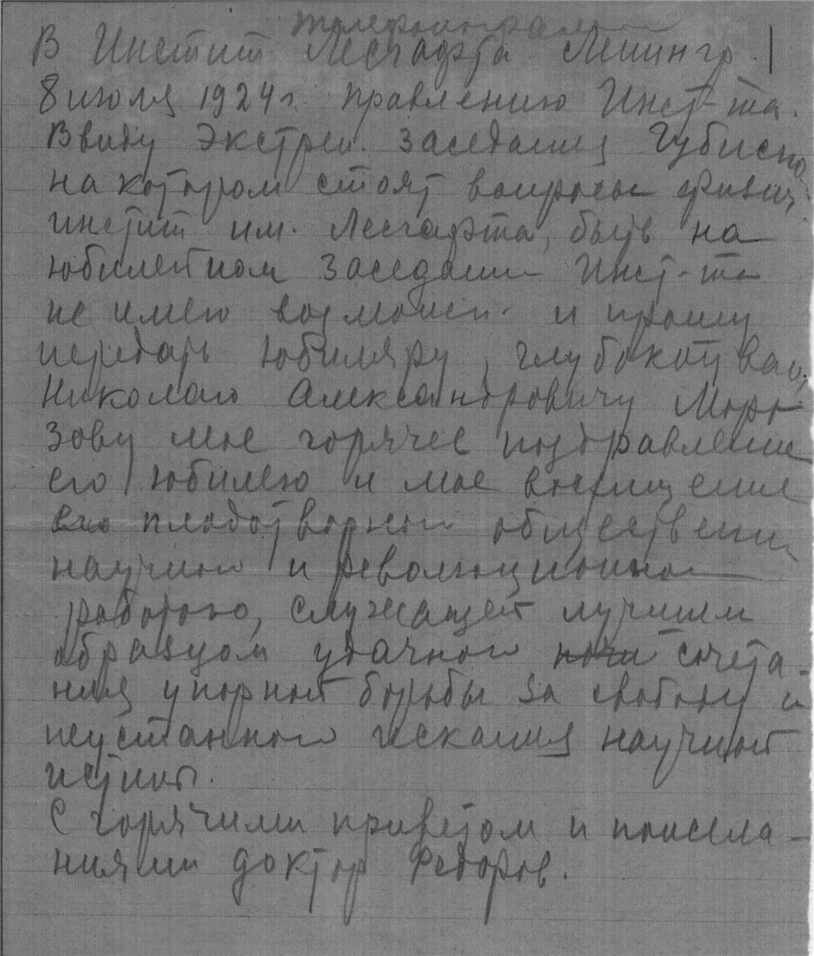 телефонограмма
В Инстит. Лесгафта Ленингр.
8 июля 1924 г. правлению Инст-та.
Ввиду экстрен. заседания Губиспо
на котором стоят вопросы физич.
инстит им. Лесгафта, быть на
юбилейном заседании Инст-та
не имею возможн. и прошу
передать юбиляру, глубокоуваж.
Николаю Александровичу Моро
зову мое горячее поздравление
его юбилею и мое восхищение
его плодотворной обществен.
научной и революционной
работою, служащей лучшим
образцом удачного сочета-
ния упорной борьбы за свободу и
неустанного искания научной
истины.
С горячими приветом и пожела-
ниями доктор Федоров.